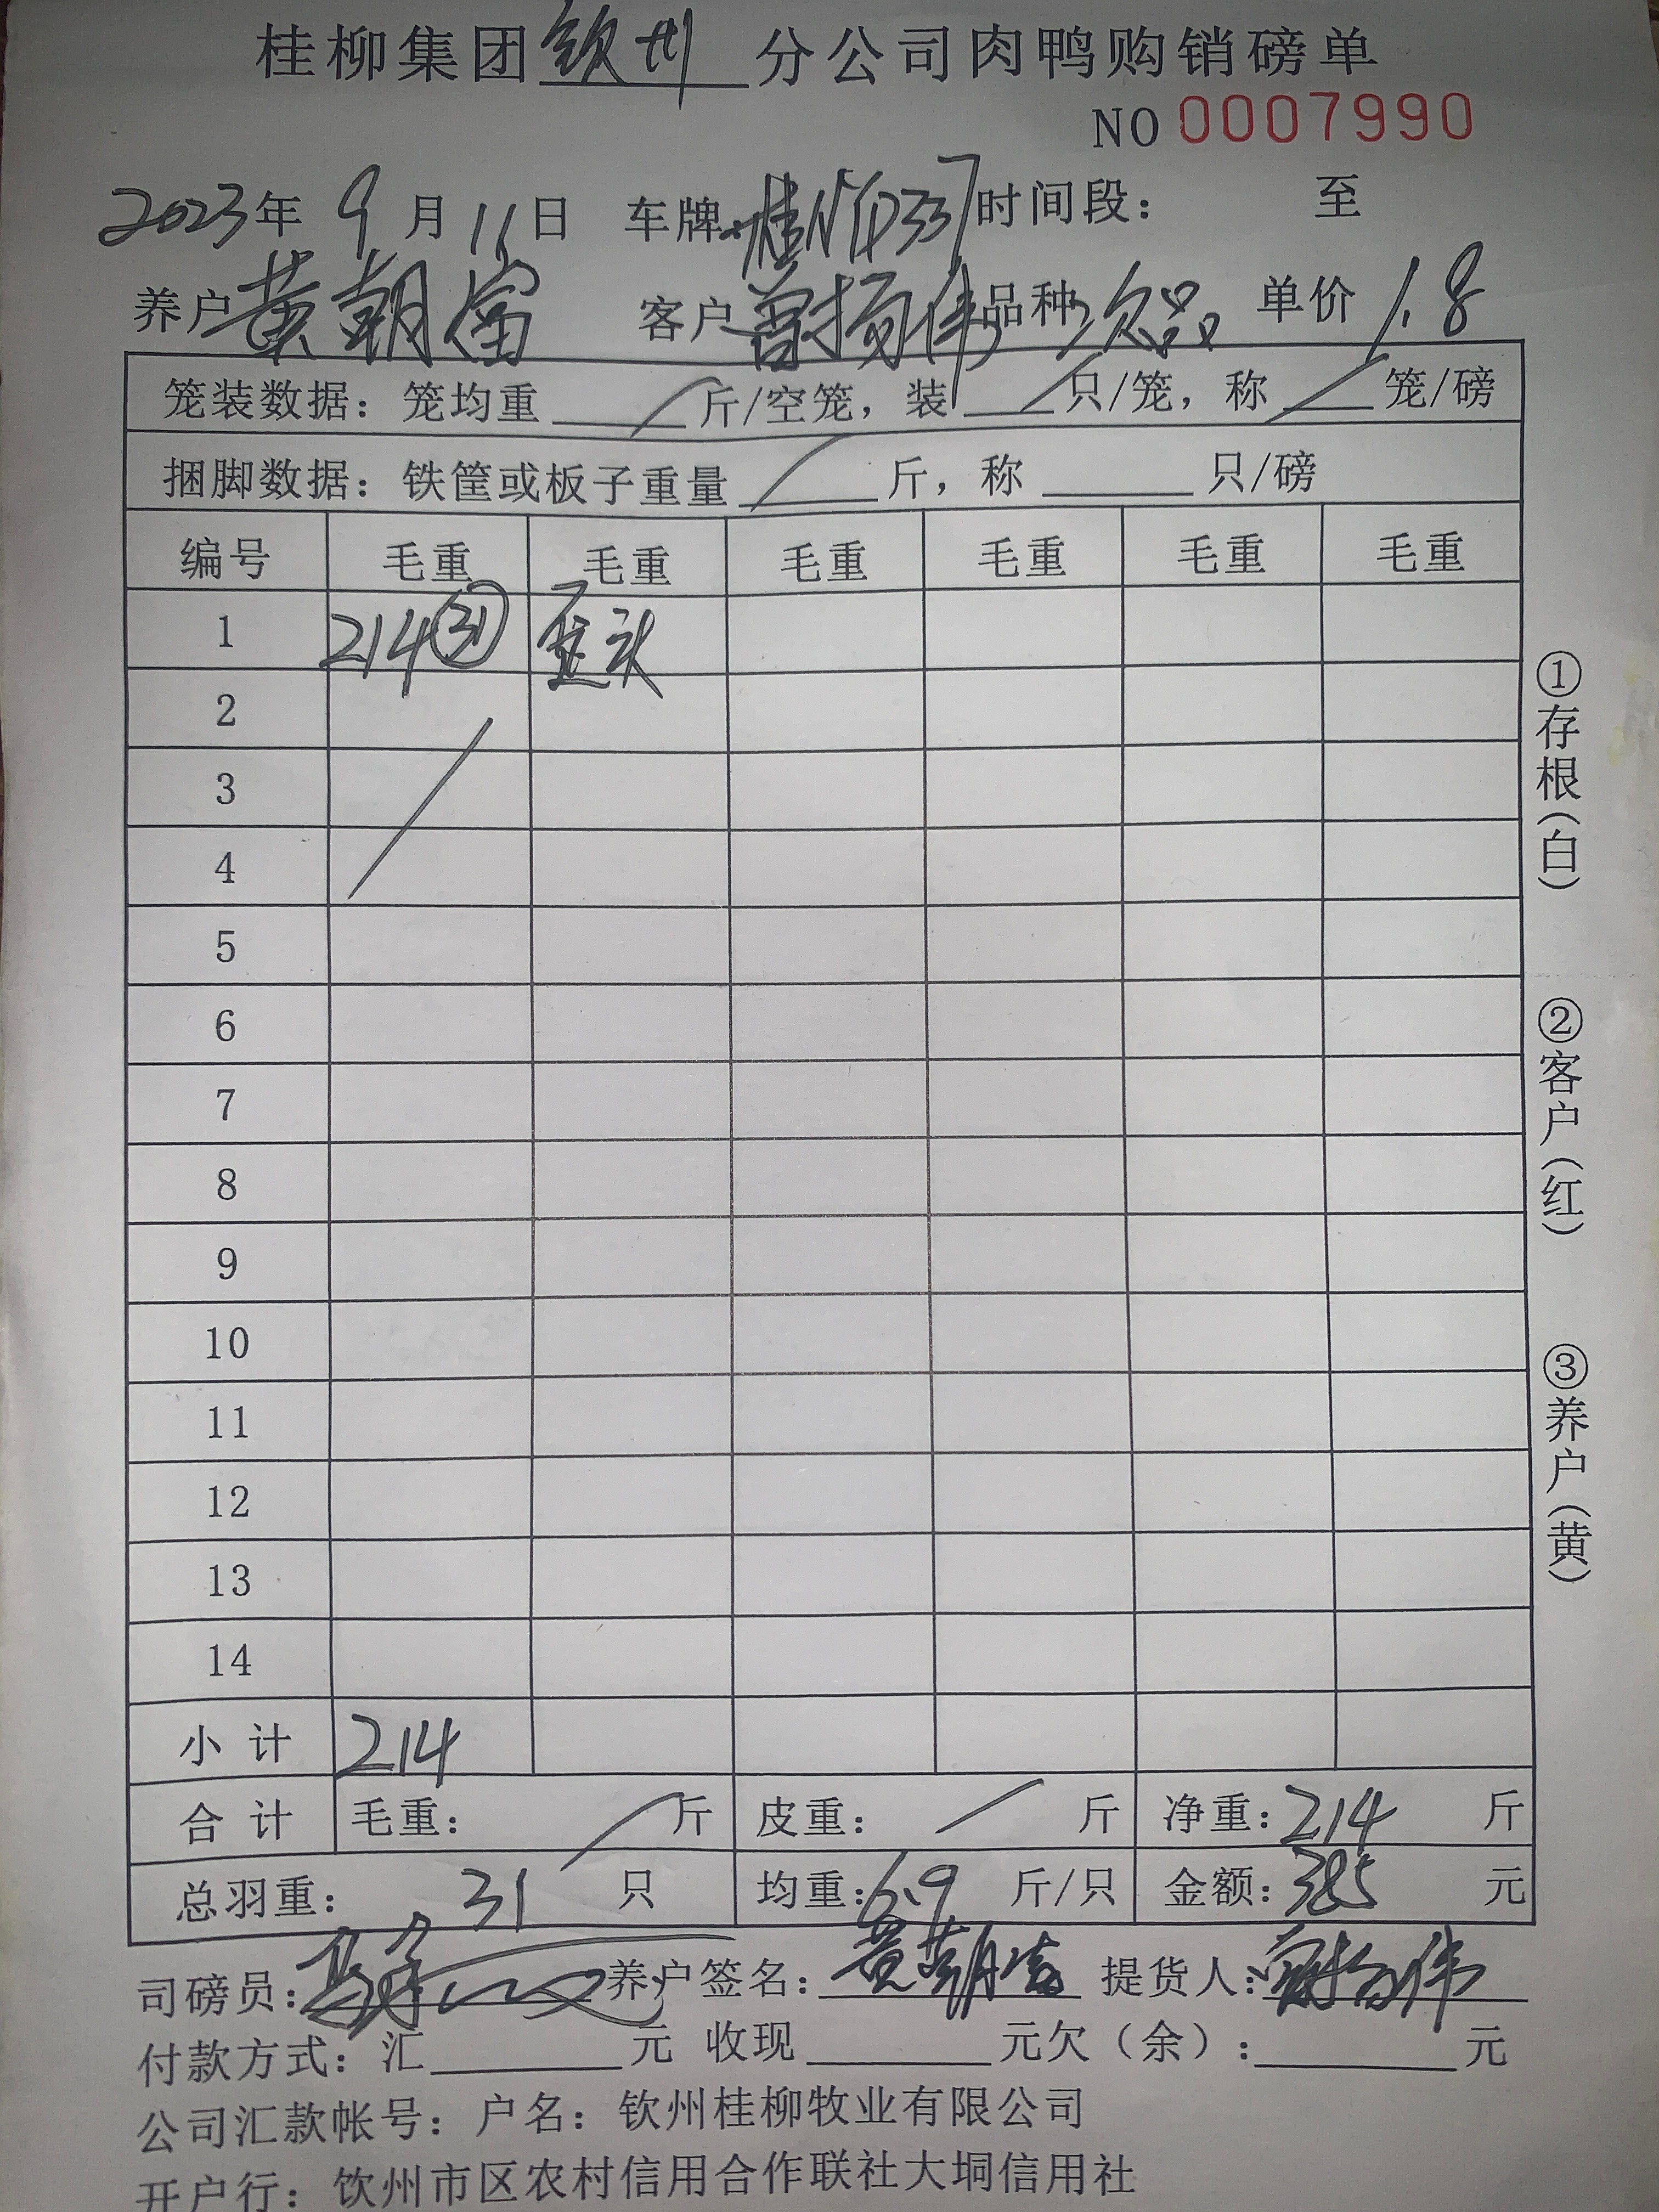 桂柳集团钦州分公司肉鸭购销磅单
NO 0007990
2023年 9月 11日 车牌 时间段: 至
养户黄朝富 客户曾扬伟 品种次品 单价1.8
笼装数据: 笼均重 斤/空笼, 装 只/笼, 称 笼/磅
捆脚数据: 铁筐或板子重量 斤, 称 只/磅
编号 毛重 毛重 毛重 毛重 毛重 毛重
1 214 ㉛ 歪头
2
3
4
5
6
7
8
9
10
11
12
13
14
小计 214
合计 毛重: 斤 皮重: 斤 净重: 214 斤
总羽重: 31 只 均重: 6.9 斤/只 金额: 385 元
司磅员: 养户签名: 黄朝富 提货人: 曾扬伟
付款方式: 汇 元 收现 元欠(余): 元
公司汇款帐号: 户名: 钦州桂柳牧业有限公司
开户行: 钦州市区农村信用合作联社大垌信用社
①存根(白)
②客户(红)
③养户(黄)